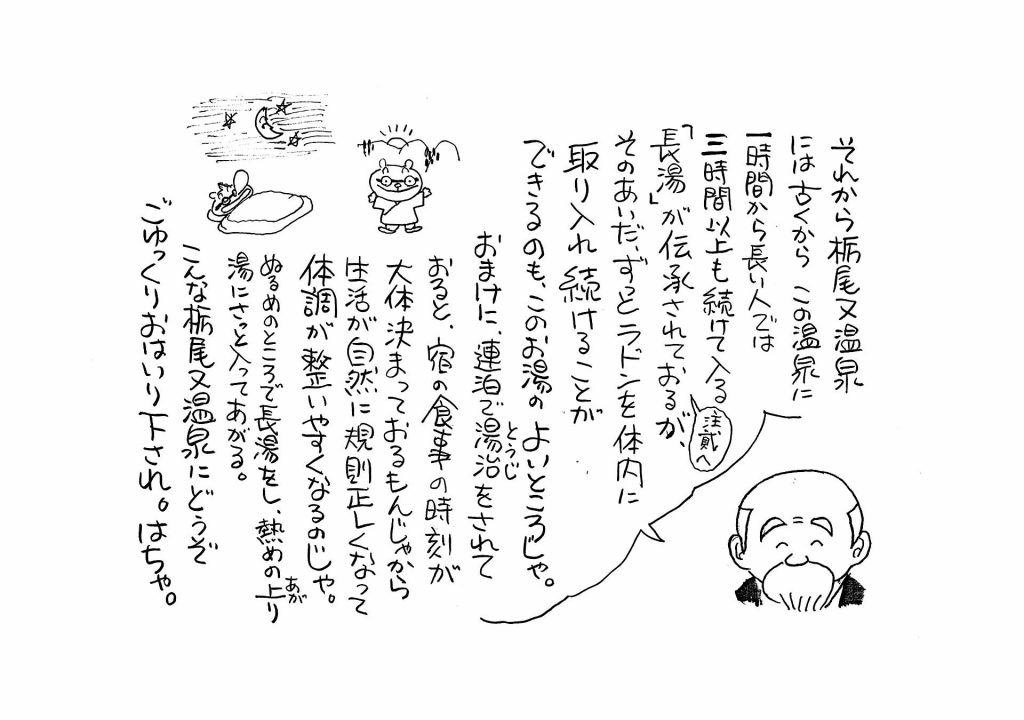 それから栃尾又温泉
には古くからこの温泉に
一時間から長い人では
三時間以上も続けて入る
注貮へ
「長湯」が伝承されておるが、
そのあいだ、ずっとラドンを体内に
取り入れ続けることが
できるのも、このお湯のよいところじゃ。
おまけに、連泊で湯治をされて
とうじ
おると、宿の食事の時刻が
大体決まっておるもんじゃから
生活が自然に規則正しくなって
体調が整いやすくなるのじゃ。
ぬるめのところで長湯をし、熱めの上り
あが
湯にさっと入ってあがる。
こんな栃尾又温泉にどうぞ
ごゆっくりおはいり下され。はちゃ。